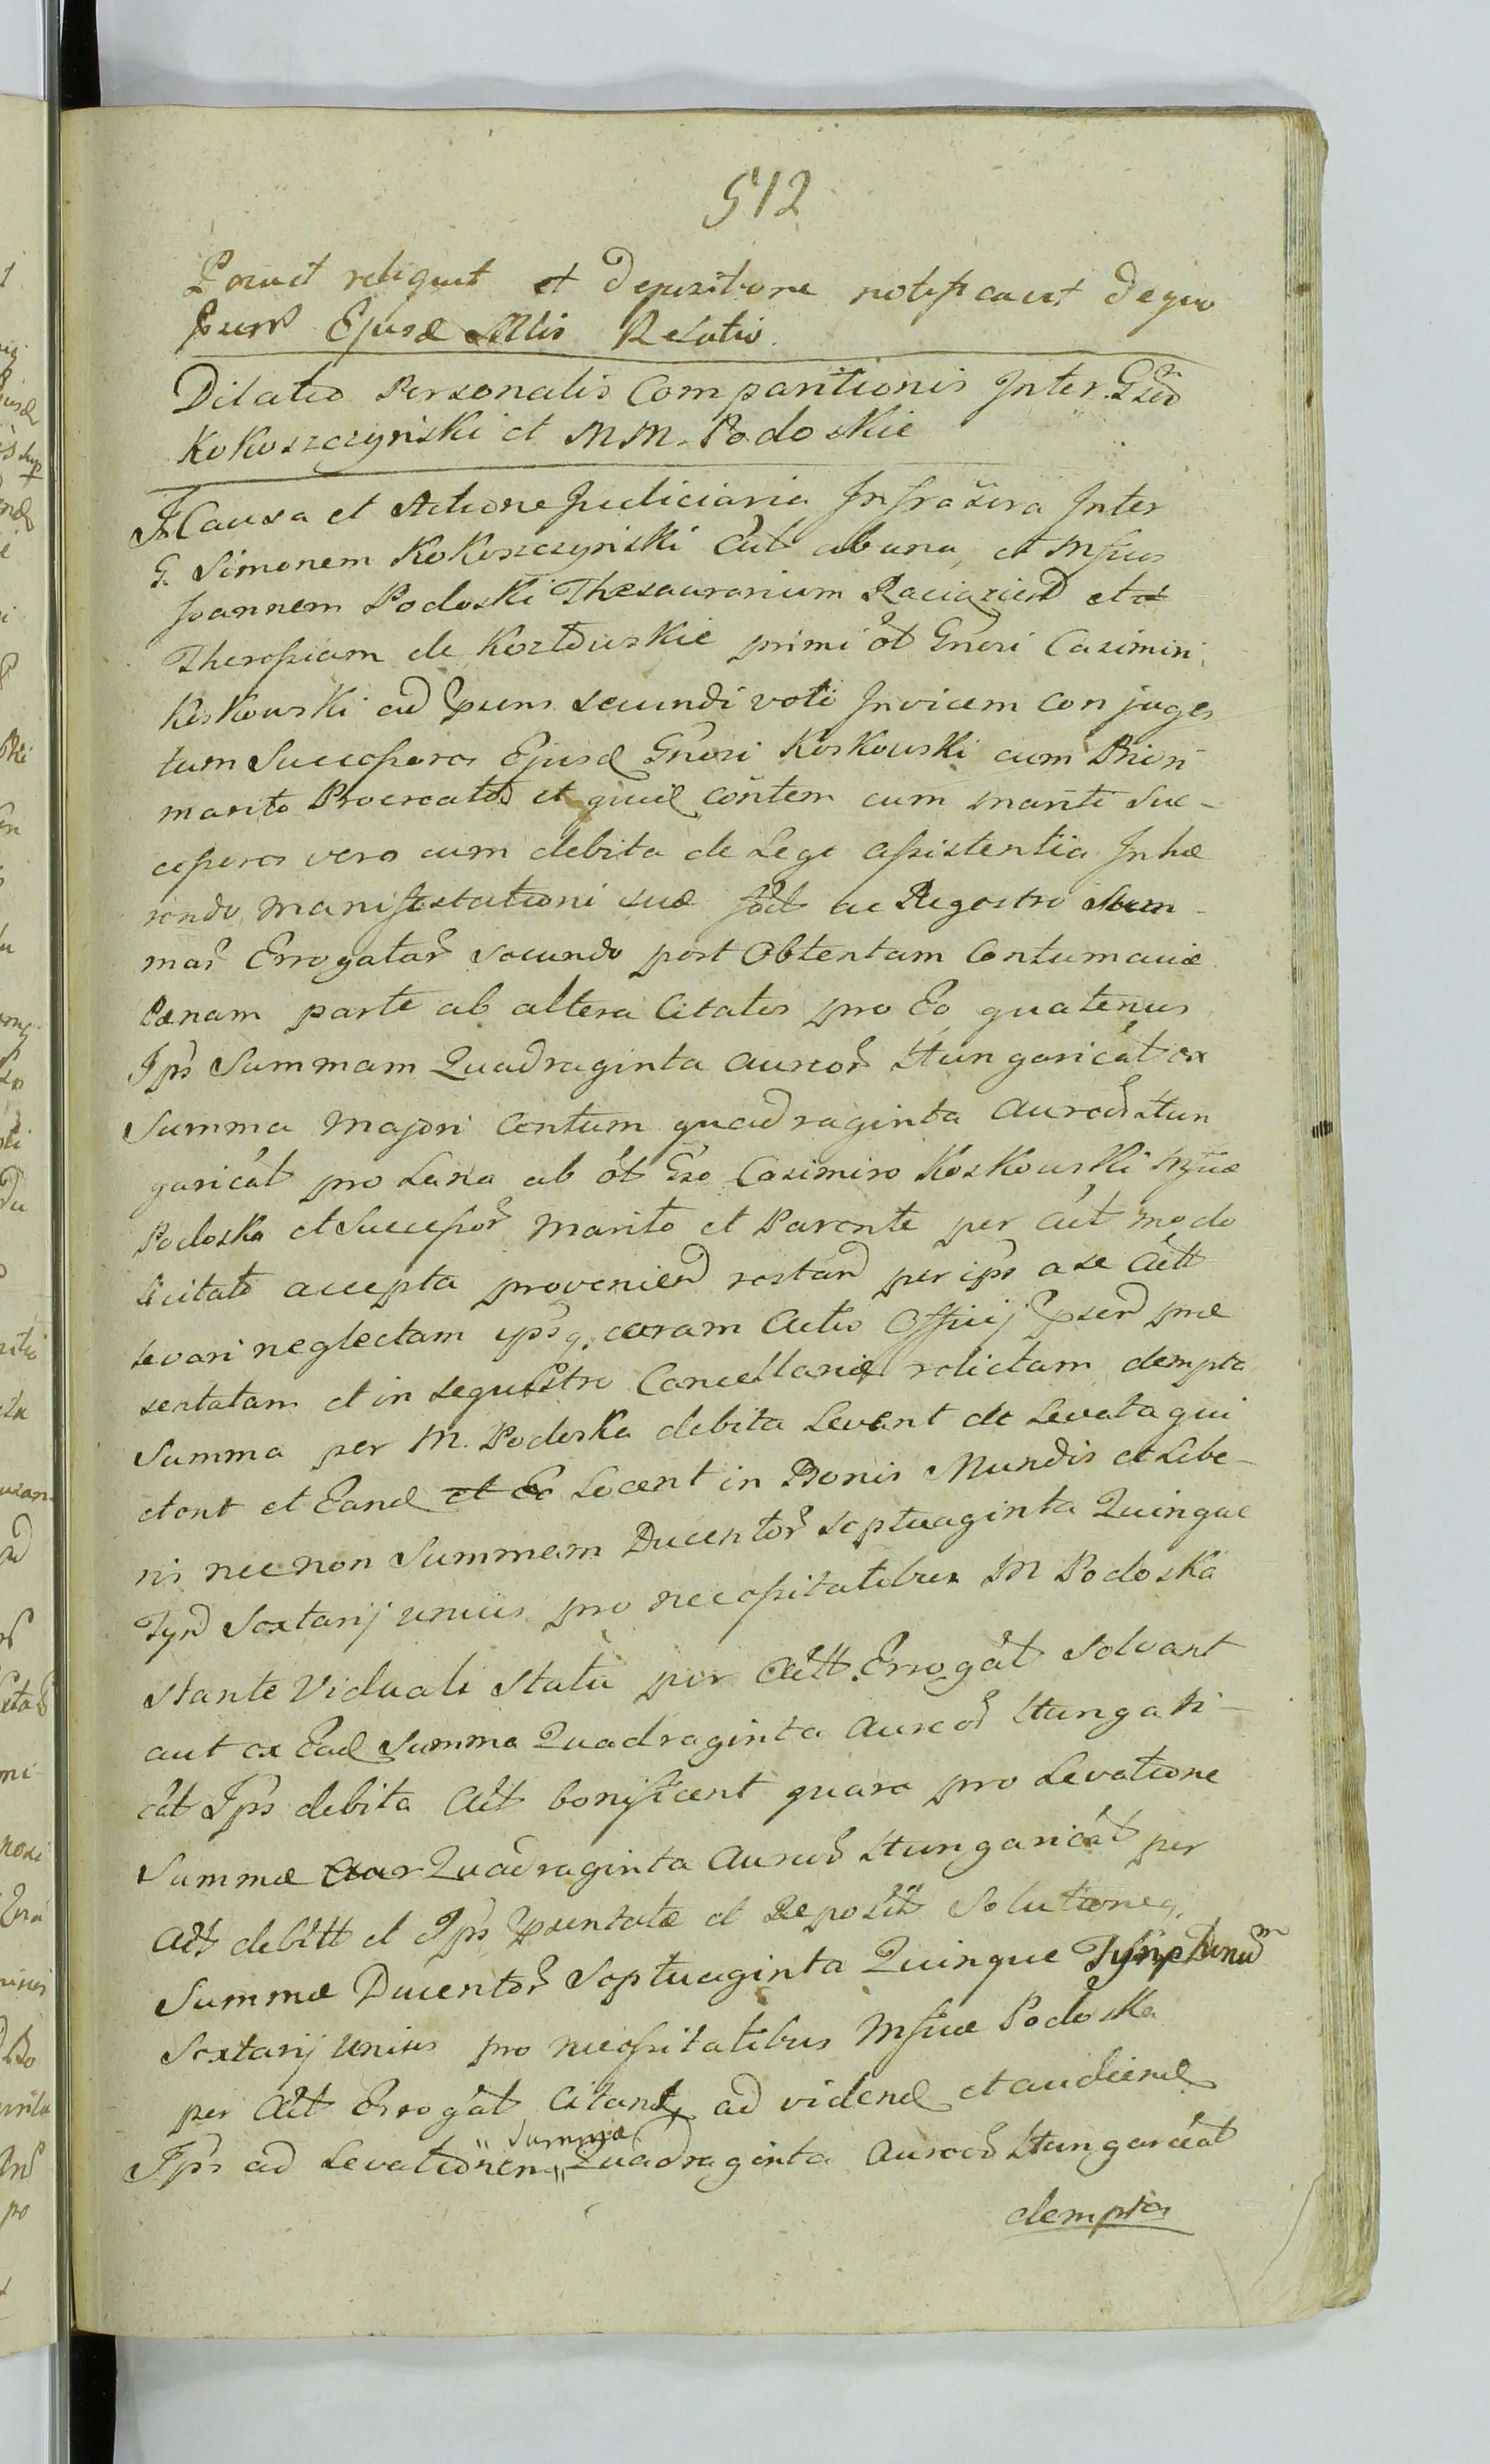 512
Posuit reliquit et depositione notificavit de quo
Ejusd Mlis Relatio.
Dilatio Personalis Comparitionis Inter Gsed
Kokoszczynski et MM. Podoskie
In Causa et Actione Judiciaria Infrascra Inter
G. Simonem Kokoszczynski Act ab una, et Mfcos
Joannem Podoski Thesaurarium Raciazien et
Theresiam de Koztowskie primi ot Gnosi Casimiri
Koskowski ad psens secundi voti Invicem conjuges
tum Successores Ejusd Gnosi Koskowski cum Priori
marito Procreatos et quid contem cum mariti Suc-
cessores vero cum debita de Lege assistentia Inhæ
rendo Manifestationi suæ fact ac Regestro Sum-
mar Errogatar secundo post Obtentam Contumaciæ
Pænam parte ab altera Citatos pro Eo quatenus
Ips Summam Quadraginta aureor Hungaricat ex
Summa Majori Centum quadraginta Aureor Hun
garicat pro Lana ab ot Gso Casimiro Koskowski Mfcæ
Podoska et Successor Marito et Parente per Act modo
licitato accepta provenien restan per ips a se Actt
levari neglectam ipsq. coram Actis Officij psen præ
sentatam et in sequestro Cancellariæ relictam dempta
Summa per M. Podoska debita Levent de Levata qui
etent et Eand et Eo Locent in Bonis Mundis et Libe-
ris nec non Summam Ducentor septuaginta Quinque
Tyn Sextarij unius pro necessitatibus M Podoska
stante Viduali Statu per Actt. Errogat solvant
aut ex Ead Summa Quadraginta Aureor Hungari-
cat Ips debita Act bonificent quare pro Levatione
Summæ Aur Quadraginta Aureor Hungaricat per
Act debitt et Ips psentatæ et Reposit Solutioneq.
Summæ Ducentor Septuaginta Quinque Tynphonum
Sextarij Unius pro necessitatibus Mfcæ Podoska
per Act Errogat Citant, ad vidend et audiend
Ips ad Levationem "Summæ" Quadraginta Aureor Hungaricat
dempta